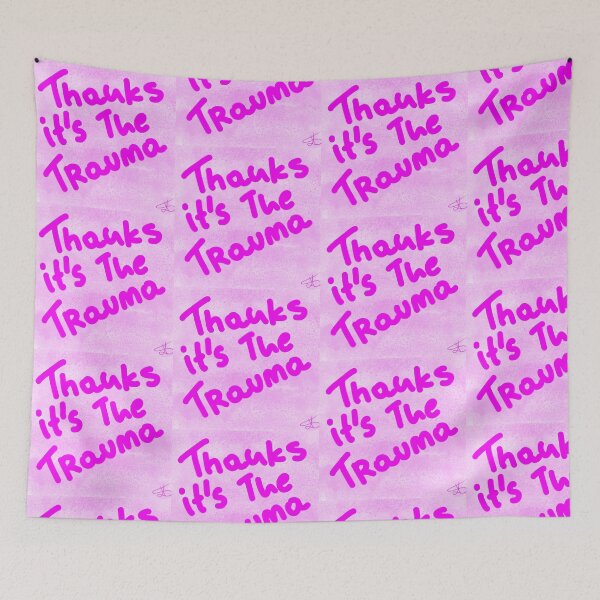 Thanks
it's The
Trauma
Thanks
it's The
Trauma
Thanks
it's The
Trauma
Thanks
it's The
Trauma
Thanks
it's The
Trauma
Thanks
it's The
Trauma
Thanks
it's The
Trauma
Thanks
it's The
Trauma
Thanks
it's The
Trauma
Thanks
it's The
Trauma
Thanks
it's The
Trauma
Thanks
it's The
Trauma
Thanks
it's The
Trauma
Thanks
it's The
Trauma